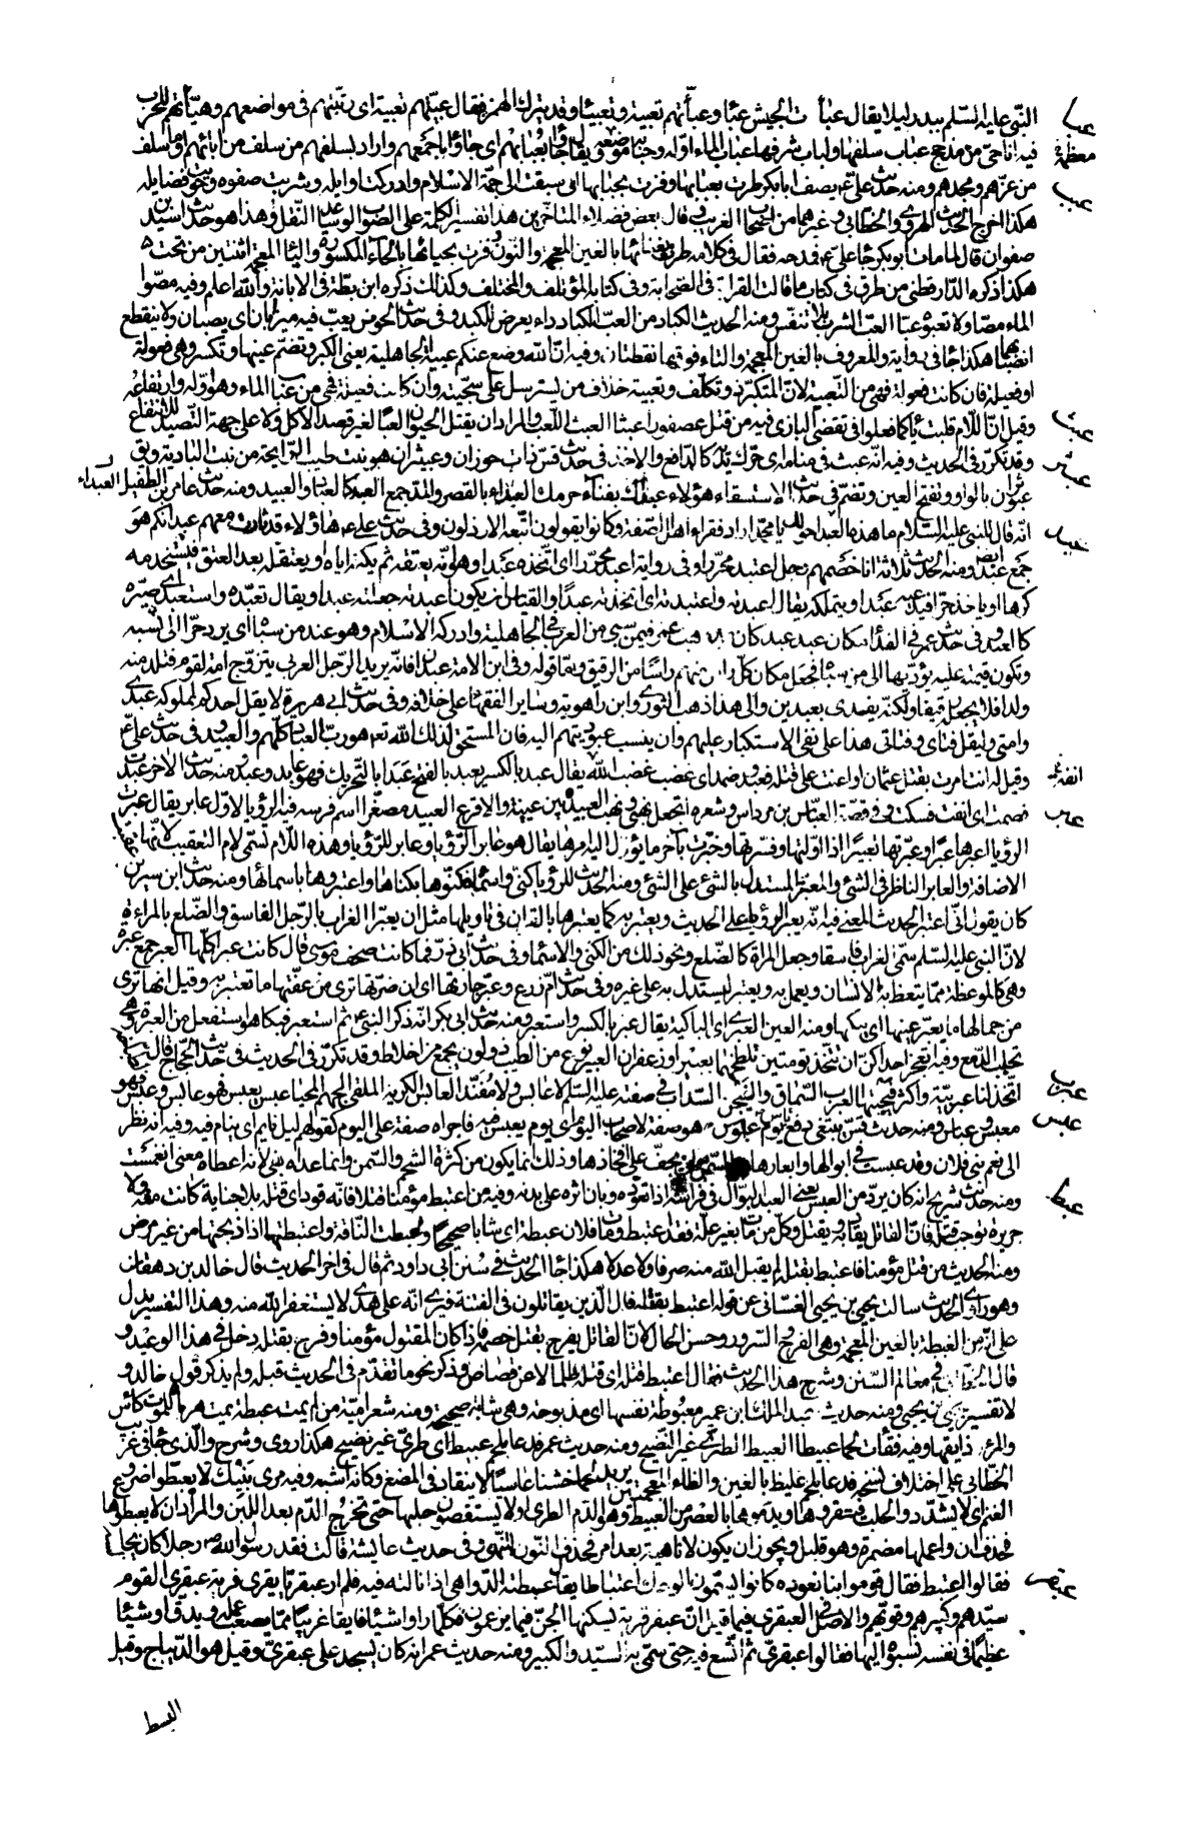 النبي عليه السلم ببدر ليلا يقال عبأت الجيش عبأ وعبأتهم تعبية وتعبيئا وقد يترك الهمز فيقال عبيتهم تعبية اى رتبتهم فى مواضعهم وهيأتهم للحرب
عبا
فيه انا حى من مذحج عباب سلفها ولباب شرفها عباب الماء اوله وحبابه معظمه ويقال جاؤا بعبابهم اى جاؤا باجمعهم واراد بسلفهم من سلف من ابائهم او ما سلف
عبب
من عزهم ومجدهم ومنه حديث على يصف ابا بكر طرت بعبابها وفزت بحبابها اى سبقت الى جمة الاسلام وادركت اوايله وشربت صفوه وحويت فضايله
هكذا اخرج الحديث الهروى والخطابى وغيرهما من اصحاب الغريب وقال بعض فضلاء المتاخرين هذا تفسير الكلمة على الصواب لو ساعد النقل وهذا هو حديث اسيد بن
صفوان قال لما مات ابو بكر جا على فمدحه فقال فى كلامه طرت بغنائها بالغين المعجمة والنون وفزت بحيائها بالحاء المكسورة والياء المعجمة اثنتين من تحت
هكذا ذكره الدارقطنى من طرق فى كتاب ما قالت القرابة فى الصحابة وفى كتابه المؤتلف والمختلف وكذلك ذكره ابن بطة فى الابانة والله اعلم وفيه مصوا
الماء مصا ولا تعبوه عبا العب الشرب بلا تنفس ومنه الحديث الكباد من العب الكباد داء يعرض للكبد وفى حديث الحوض يعب فيه ميزابان اى يصبان ولا ينقطع
انصبابهما هكذا جا فى رواية والمعروف بالغين المعجمة والتاء فوقها نقطتان وفيه ان الله وضع عنكم عبية الجاهلية يعنى الكبر وتضم عينها وتكسر وهى فعولة
او فعيلة فان كانت فعولة فهى من التعبية لان المتكبر ذو تكلف وتعبية خلاف من يسترسل على سجيته وان كانت فعيلة فهى من عباب الماء وهو اوله وارتفاعه
وقيل ان اللام قلبت ياء كما فعلوا فى تقضى البازى فيه من قتل عصفورا عبثا العبث اللعب والمراد ان يقتل الحيوان لعبا لغير قصد الاكل ولا على جهة التصيد للانتفاع
عبث
وقد تكرر فى الحديث وفيه انه عبث فى منامه اى حرك يديه كالدافع والاخذ فى حديث قس ذات حوزان وعبيثران هو نبت طيب الرائحة من نبت البادية ويق
عبثر
عبوثران بالواو وتفتح العين وتضم فى حديث الاستسقاء هؤلاء عبداك بفناء حرمك العبداء بالقصر والمد جمع العبد كالعباد والعبيد ومنه حديث عامر بن الطفيل
انه قال للنبى عليه السلام ما هذه العبداء حولك يا محمد اراد فقراء اهل الصفة وكانوا يقولون اتبعه الارذلون وفى حديث على هؤلاء قد ثارت معهم عبدانكم هو
عبد
جمع عبد ايضا ومنه الحديث ثلاثة انا خصمهم رجل اعتبد محررا وفى رواية اعبد محررا اى اتخذه عبدا وهو ان يعتقه ثم يكتمه اياه او يعتقله بعد العتق فيستخدمه
كرها او ياخذ حرا فيدعيه عبدا ويتملكه يقال اعبدته واعتبدته اى اتخذته عبدا والقياس ان يكون اعبدته جعلته عبدا ويقال تعبده واستعبده اى صيره
كالعبد وفى حديث عمر فى الفداء مكان عبد عبد كان من مذهب عمر فيمن سبى من العرب فى الجاهلية وادركه الاسلام وهو عند من سباه ان يرد حرا الى نسبه
وتكون قيمته عليه يؤديها الى من سباه فجعل مكان كل راس منهم راسا من الرقيق واما قوله وفى ابن الامة عبدان فانه يريد الرجل العربى يتزوج امة لقوم فتلد منه
ولدا فلا يجعله رقيقا ولكنه يفدى بعبدين والى هذا ذهب الثورى وابن راهويه وساير الفقهاء على خلافه وفى حديث ابى هريرة لا يقل احدكم لمملوكه عبدى
وامتى وليقل فتاى وفتاتى هذا على نفى الاستكبار عليهم وان ينسب عبوديتهم اليه فان المستحق لذلك الله تعالى هو رب العباد كلهم والعبيد وفى حديث على
وقيل له انت امرت بقتل عثمان او اعنت على قتله فعبد وضمد اى غضب غضب انفة يقال عبد بالكسر يعبد بالفتح عبدا بالتحريك فهو عابد وعبد ومنه حديثه الاخر عبدت
فصمت اى انفت فسكت وفى قصة العباس بن مرداس وشعره اتجعل نهبى ونهب العبيد بين عيينة والاقرع العبيد مصغرا اسم فرسه فيه الرؤيا لاول عابر يقال عبرت
عبر
الرؤيا اعبرها عبرا وعبرتها تعبيرا اذا اولتها وفسرتها وخبرت بآخر ما يؤول اليه امرها يقال هو عابر الرؤيا وعابر للرؤيا وهذه اللام تسمى لام التعقيب لانها عقبت
الاضافة والعابر الناظر فى الشئ والمعتبر المستدل بالشئ على الشئ ومنه الحديث للرؤيا كنى واسماء فكنوها بكناها واعتبروها باسمائها ومنه حديث ابن سيرين
كان يقول انى اعتبر الحديث المعنى فيه انه يعبر الرؤيا على الحديث ويعتبر به كما يعتبرها بالقرآن فى تاويلها مثل ان يعبر الغراب بالرجل الفاسق والضلع بالمراة
لان النبى عليه السلم سمى الغراب فاسقا وجعل المراة كالضلع ونحو ذلك من الكنى والاسماء وفى حديث ابى ذر فما كانت صحف موسى قال كانت عبرا كلها العبر جمع عبرة
وهى كالموعظة مما يتعظ به الانسان ويعمل به ويعتبر ليستدل به على غيره وفى حديث ام زرع وعبر جارتها اى ان ضرتها ترى من عفتها ما تعتبر به وقيل انها ترى
من جمالها ما يعبر عينها اى يبكيها ومنه العين العبرى اى الباكية يقال عبر بالكسر واستعبر ومنه حديث ابى بكر انه ذكر النبى ثم استعبر فبكى هو استفعل من العبرة وهى
تحلب الدمع وفيه اتعجز احداكن ان تتخذ تومتين تلطخهما بعبير او زعفران العبير نوع من الطيب ذو لون يجمع من اخلاط وقد تكرر فى الحديث فى حديث الحجاج قال لطباخه
اتخذ لنا عبربية واكثر فيجنها العبرب السماق والفيجن السذاب فى صفته عليه السلم لا عابس ولا مفند العابس الكريه الملقى الجهم المحيا عبس يعبس فهو عابس وعبس فهو
عبرب
معبس وعباس ومنه حديث قس يبتغى دفع باس يوم عبوس هو صفة لاصحاب اليوم اى يوم يعبس فيه فاجراه صفة على اليوم كقولهم ليل نايم اى ينام فيه وفيه انه نظر
عبس
الى نعم بنى فلان وقد عبست فى ابوالها وابعارها من السمن هو ان تجف على افخاذها وذلك انما يكون من كثرة الشحم والسمن وانما عداه بفى لانه اعطاه معنى انغمست
ومنه حديث شريح انه كان يرد من العبس يعنى العبد البوال فى فراشه اذا تعوده وبان اثره على بدنه وفيه من اعتبط مؤمنا قتلا فانه قود اى قتله بلا جناية كانت منه ولا
عبط
جريرة توجب قتله فان القاتل يقاد به ويقتل وكل من مات بغير علة فقد اعتبط ومات فلان عبطة اى شابا صحيحا وعبطت الناقة واعتبطتها اذا ذبحتها من غير مرض
ومنه الحديث من قتل مؤمنا فاعتبط بقتله لم يقبل الله منه صرفا ولا عدلا هكذا جا الحديث فى سنن ابى داود ثم قال فى اخر الحديث قال خالد بن دهقان
وهو راوى الحديث سالت يحيى بن يحيى الغسانى عن قوله اعتبط بقتله قال الذين يقاتلون فى الفتنة فيرى انه على هدى لا يستغفر الله منه وهذا التفسير يدل
على انه من الغبطة بالغين المعجمة وهى الفرح والسرور وحسن الحال لان القاتل يفرح بقتل خصمه فاذا كان المقتول مؤمنا وفرح بقتله دخل فى هذا الوعيد و
قال الخطابى فى معالم السنن وشرح هذا الحديث فقال اعتبط قتله اى قتله ظلما لا عن قصاص وذكر نحو ما تقدم فى الحديث قبله ولم يذكر قول خالد و
لا تفسير يحيى بن يحيى ومنه حديث عبد الملك ابن عمير معبوطة نفسها اى مذبوحة وهى شابة صحيحة ومنه شعر امية من لم يمت عبطة يمت هرما للموت كاس
والمرء ذايقها وفيه فقاءت لحما عبيطا العبيط الطرى غير النضيج ومنه حديث عمر فدعا بلحم عبيط اى طرى غير نضيج هكذا روى وشرح والذى جا فى غريب
الخطابى على اختلاف نسخه فدعا بلحم غليظ بالغين والظاء المعجمتين يريد لحما خشنا عاسيا لا ينقاد فى المضغ وكانه اشبه وفيه مرى بنيك لا يعبطوا ضروع
الغنم اى لا يشددوا الحلب فيعقروها ويدموها بالعصر من العبيط وهو الدم الطرى او لا يستقصون حلبها حتى يخرج الدم بعد اللبن والمراد ان لا يعبطوها
فحذف ان واعملها مضمرة وهو قليل ويجوز ان يكون لا ناهية بعد امر فحذف النون للنهى وفى حديث عايشة قالت فقد رسول الله رجلا كان يجالسه
فقالوا اعتبط فقال قوموا بنا نعوده كانوا يسمون الوعك اعتباطا يقال عبطته الدواهى اذا نالته فيه فلم ار عبقريا يفرى فريه عبقرى القوم
عبقر
سيدهم وكبيرهم وقويهم والاصل فى العبقرى فيما قيل ان عبقر قرية يسكنها الجن فيما يزعمون فكلما راوا شيئا فايقا غريبا مما يصعب عمله ويدق او شيئا
عظيما فى نفسه نسبوه اليها فقالوا عبقرى ثم اتسع فيه حتى سمى به السيد والكبير ومنه حديث عمر انه كان يسجد على عبقرى وقيل هو الديباج وقيل
البسط